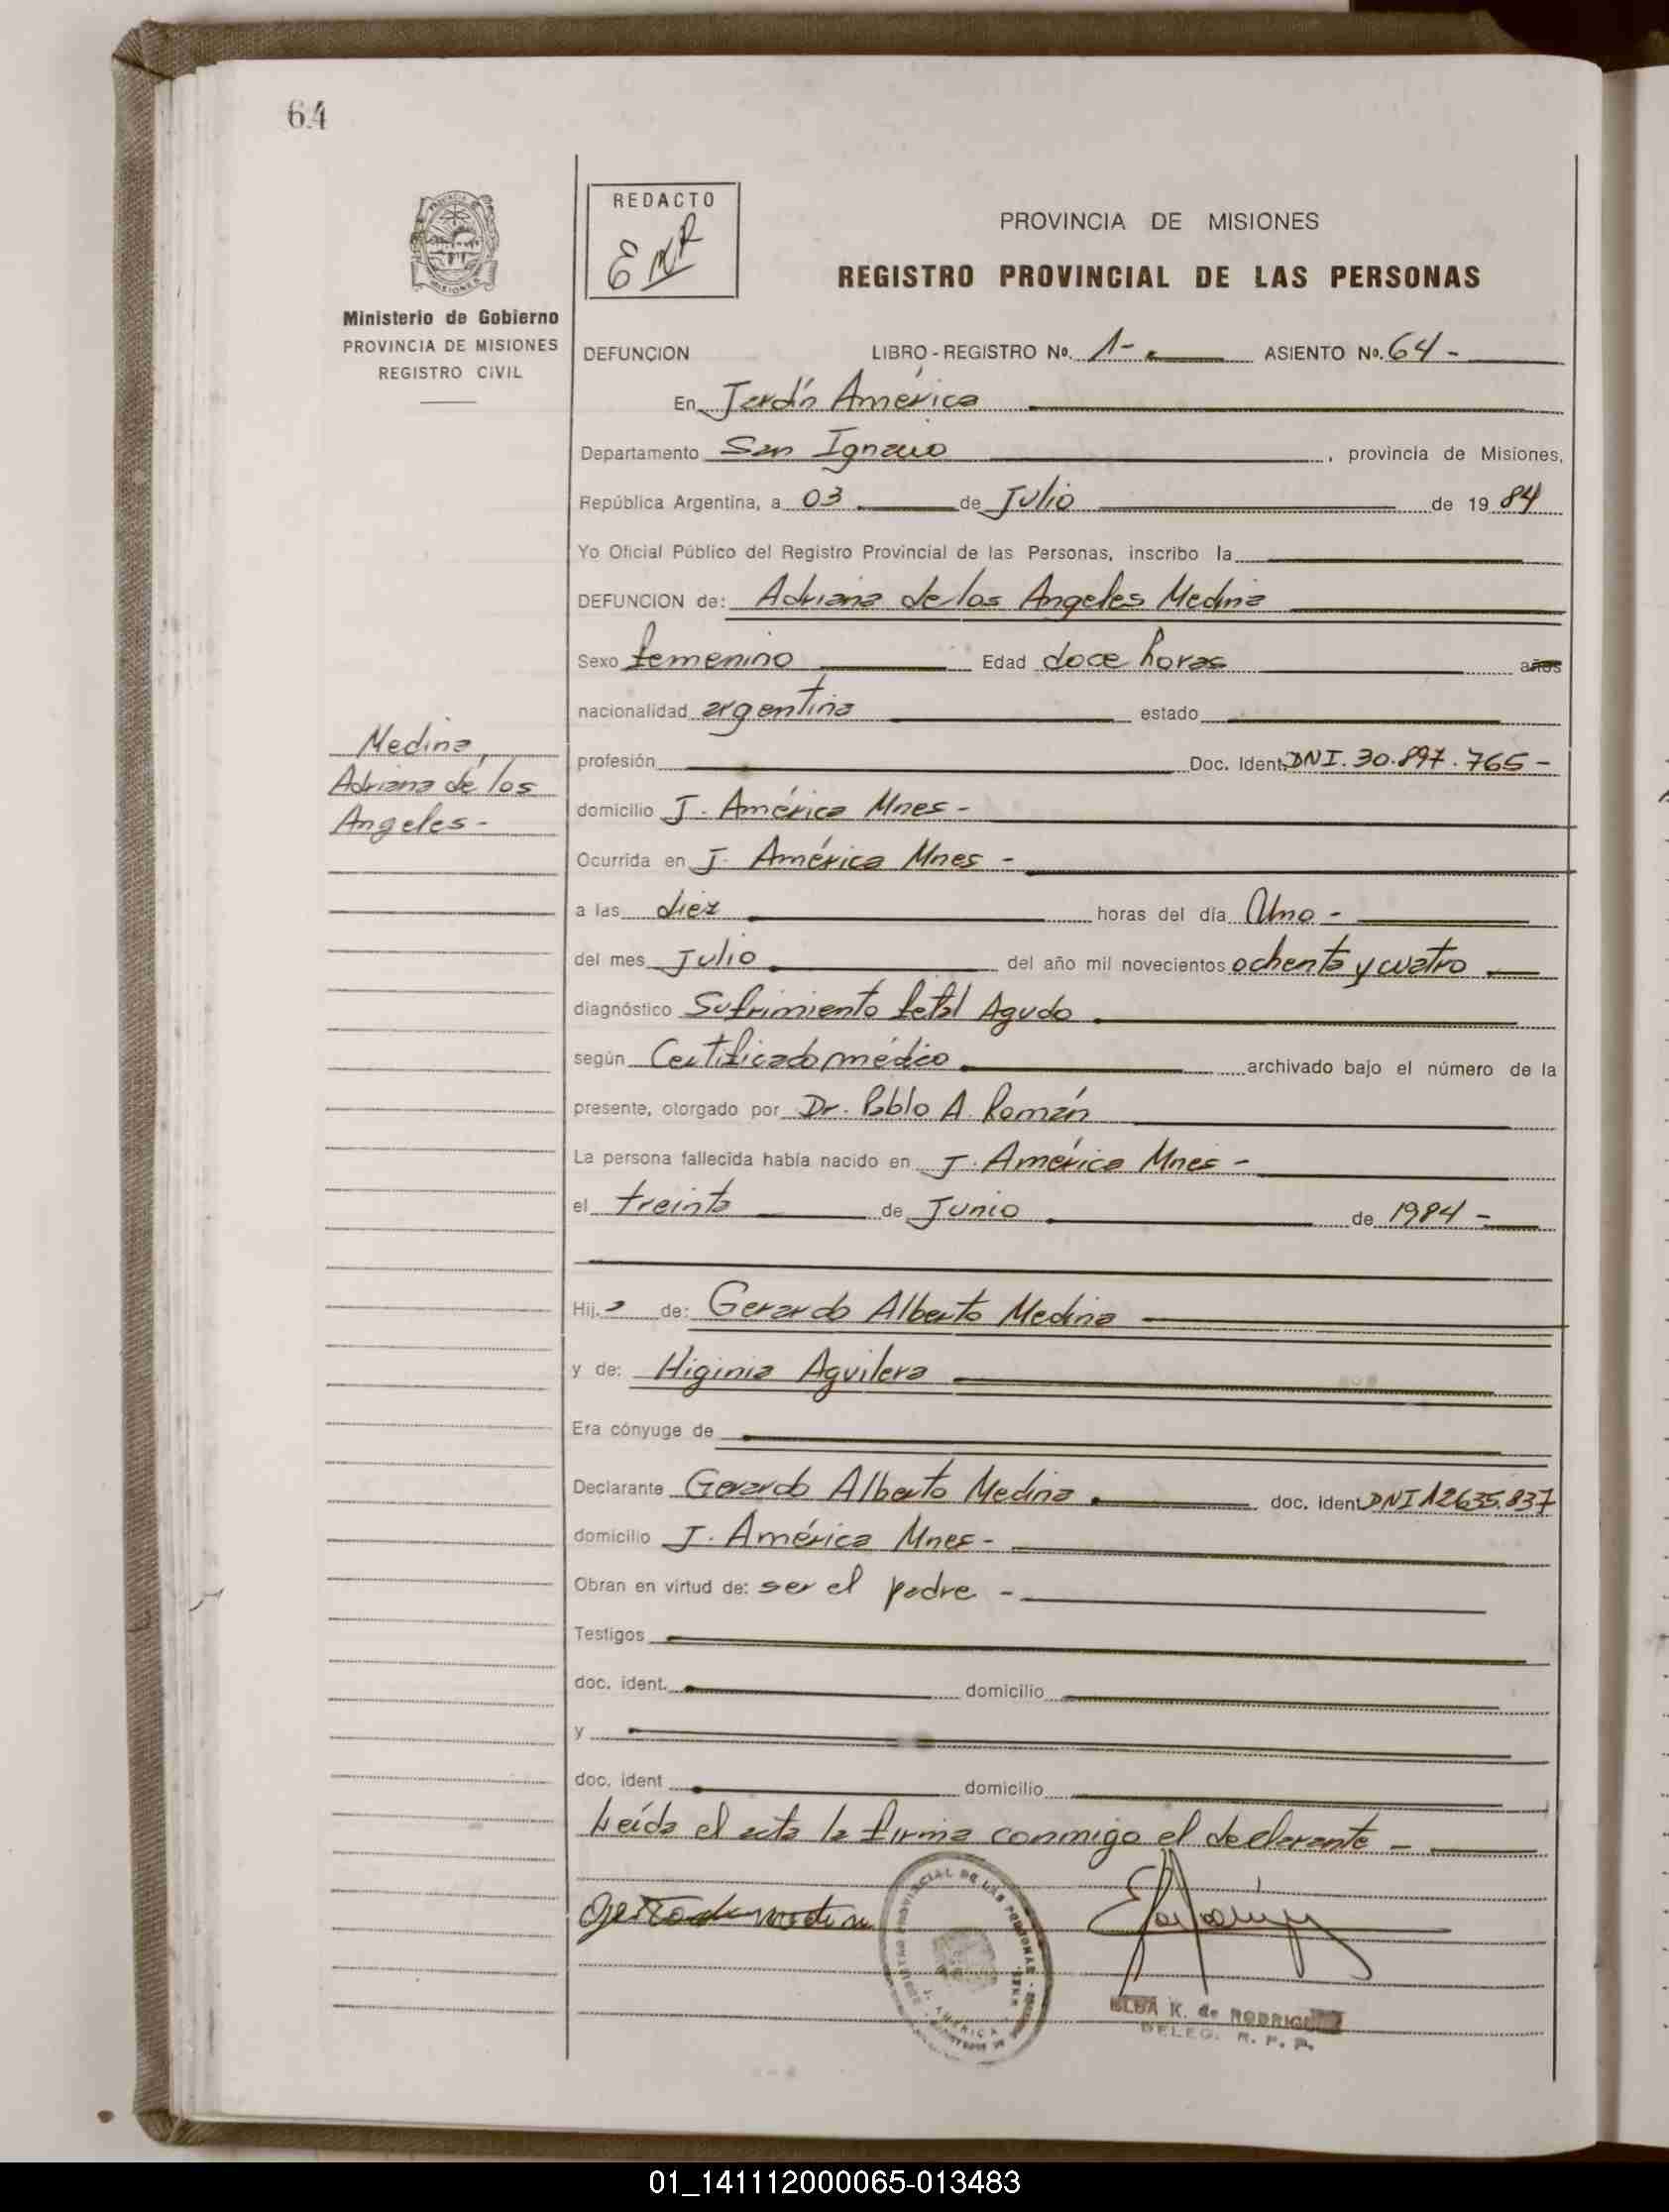 64
REDACTO
PROVINCIA DE MISIONES
REGISTRO PROVINCIAL DE LAS PERSONAS
Ministerio de Gobierno
PROVINCIA DE MISIONES
REGISTRO CIVIL
DEFUNCION LIBRO - REGISTRO No. 1- ASIENTO No. 64 -
En Jardín América
Departamento San Ignacio , provincia de Misiones,
República Argentina, a 03 de Julio de 19 84
Yo Oficial Público del Registro Provincial de las Personas, inscribo la
DEFUNCION de: Adriana de los Angeles Medina
Sexo femenino Edad doce horas años
nacionalidad argentina estado
Medina,
Adriana de los
Angeles -
profesión Doc. Ident. DNI. 30.897.765 -
domicilio J. América Mnes -
Ocurrida en J. América Mnes -
a las diez horas del día Uno -
del mes Julio del año mil novecientos ochenta y cuatro
diagnóstico Sufrimiento fetal Agudo
según Certificado médico archivado bajo el número de la
presente, otorgado por Dr. Pablo A. Román
La persona fallecida había nacido en J. América Mnes -
el treinta de Junio de 1984 -
Hij.a de: Gerardo Alberto Medina
y de: Higinia Aguilera
Era cónyuge de
Declarante Gerardo Alberto Medina doc. ident. DNI 12635.837
domicilio J. América Mnes -
Obran en virtud de: ser el padre -
Testigos
doc. ident. domicilio
y
doc. ident domicilio
Leída el acta la firma conmigo el declarante -
ELBA K. de RODRIGUEZ
DELEG. R. P. P.
01_141112000065-013483